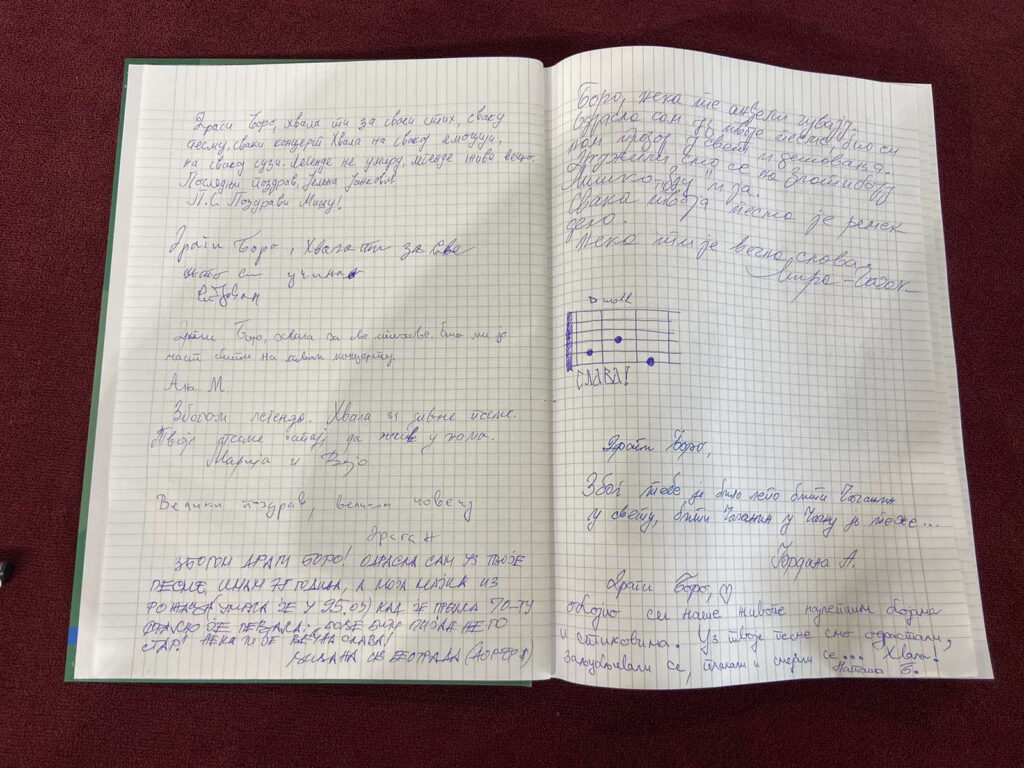 Драги Боро, хвала ти за сваки стих, сваку
песму, сваки концерт. Хвала на свакој емоцији,
на свакој сузи. Легенде не умиру, легенде живе вечно.
Последњи поздрав, Јелена Јанковић
П.С. Поздрави Мишу!
Драги Боро, Хвала ти за све
што си учинио
Драги Боро, хвала за све стихове. Било ми је
част бити на твом концерту
Ана М.
Збогом легендо. Хвала за дивне песме.
Твоје песме да живе у нама.
Марија и
Велики поздрав, великом човеку
Драган
ЗБОГОМ ДРАГИ БОРО! ОДРАСЛА САМ УЗ ТВОЈЕ
ПЕСМЕ, ИМАМ ГОДИНА, А МОЈА МАЈКА ИЗ
(УМРЛА ЈЕ У 95.) КАД ЈЕ ПРЕШЛА 70-ТУ
ЈЕ ПЕВАЛА: БОЉЕ БИТИ НЕГО
СТАР! НЕКА ТИ ЈЕ ВЕЧНА СЛАВА!
ИЗ БЕОГРАДА
Боро, нека те анђели чувају.
Одрасла сам уз твоје песме. Био си
мој прозор у свет и
смо се на Златибору
Свака твоја песма је ремек
дело.
Нека ти је вечна слава.
Мира - Чачак
D moll
СЛАВА!
Драги Боро,
Због тебе је било лепо бити Чачанин
у свету, бити Чачанин у Чачку је теже...
Гордана А.
Драги Боро, ♡
обојио си наше животе најлепшим бојама
и стиховима. Уз твоје песме смо одрастали,
заљубљивали се, плакали и смејали се... Хвала!
Наташа Б.